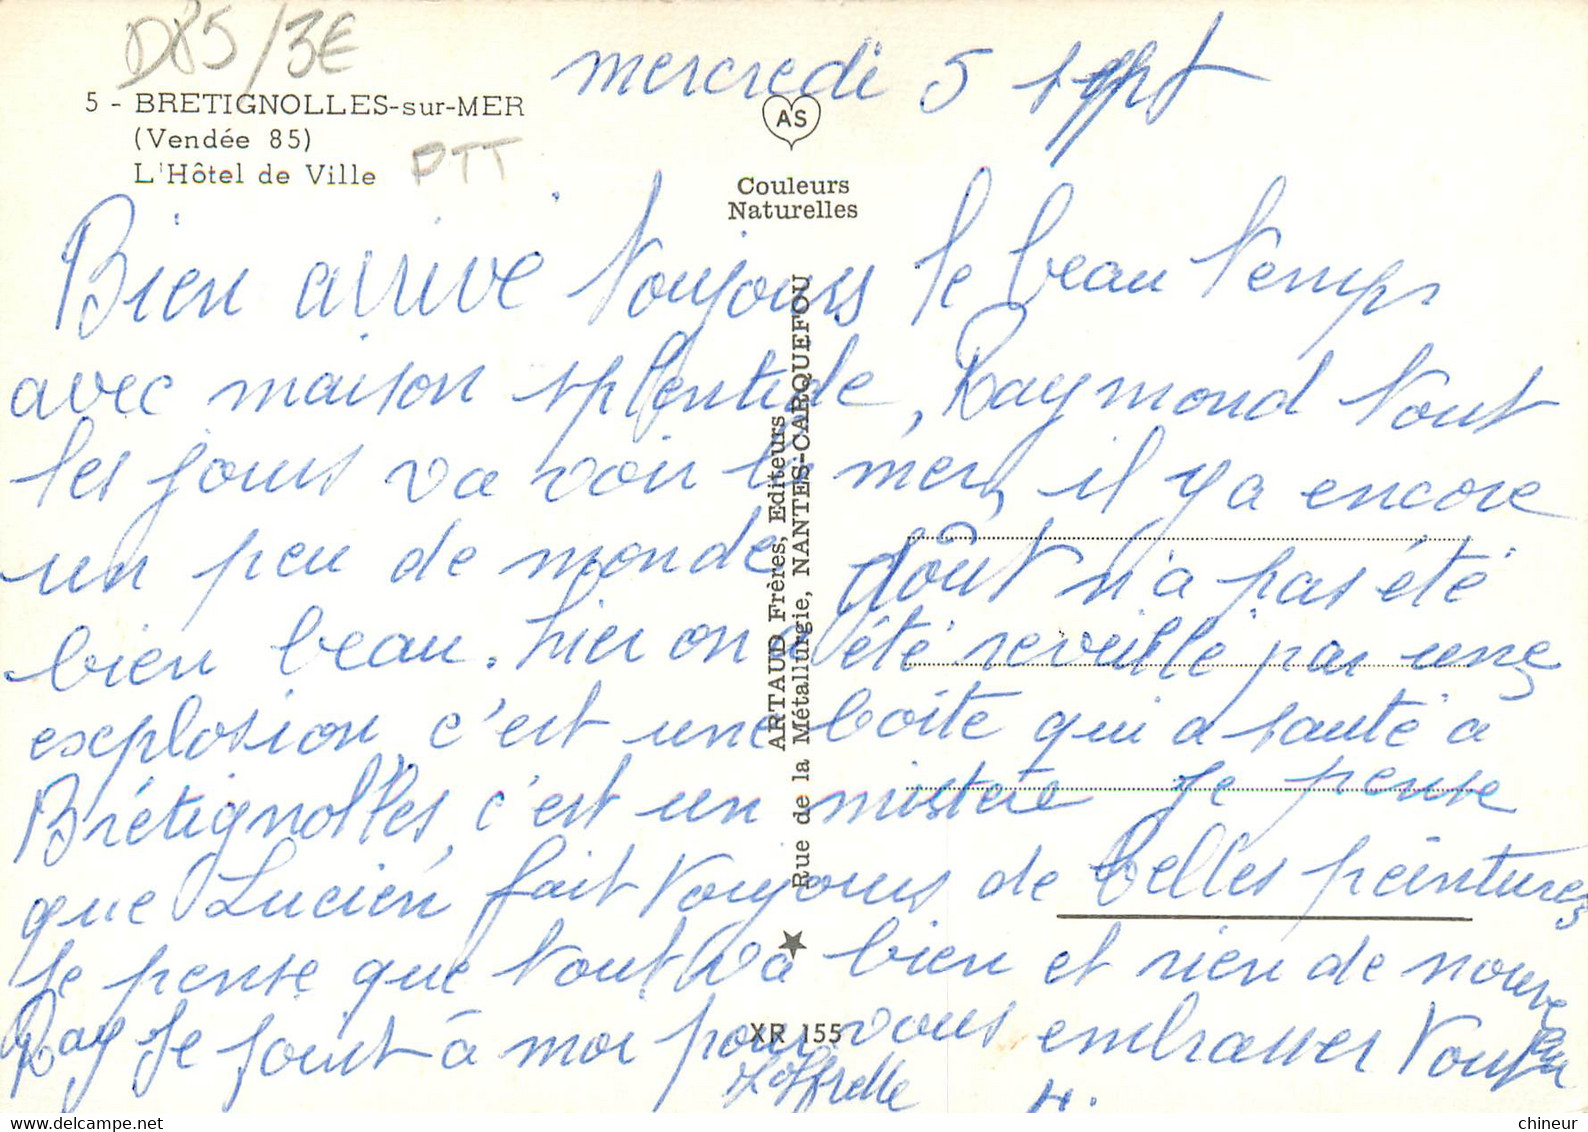 D85/3€
mercredi 5 sept
5 - BRETIGNOLLES-sur-MER
(Vendée 85)
L'Hôtel de Ville
PTT
AS
Couleurs
Naturelles
Bien arrivé toujours le beau temps
avec maison splentide, Raymond tout
les jours va voir la mer, il y a encore
un peu de monde août n'a pas été
bien beau. hier on a été reveillé par une
explosion, c'est une boite qui a sauté à
Brétignolles, c'est un mistère je pense
que Lucien fait toujours de belles peintures
Je pense que tout va bien et rien de nouveau
Ray se joint à moi pour vous embrasser tous
ARTAUD Frères, Editeurs
Rue de la Métallurgie, NANTES-CARQUEFOU
XR 155
chineur